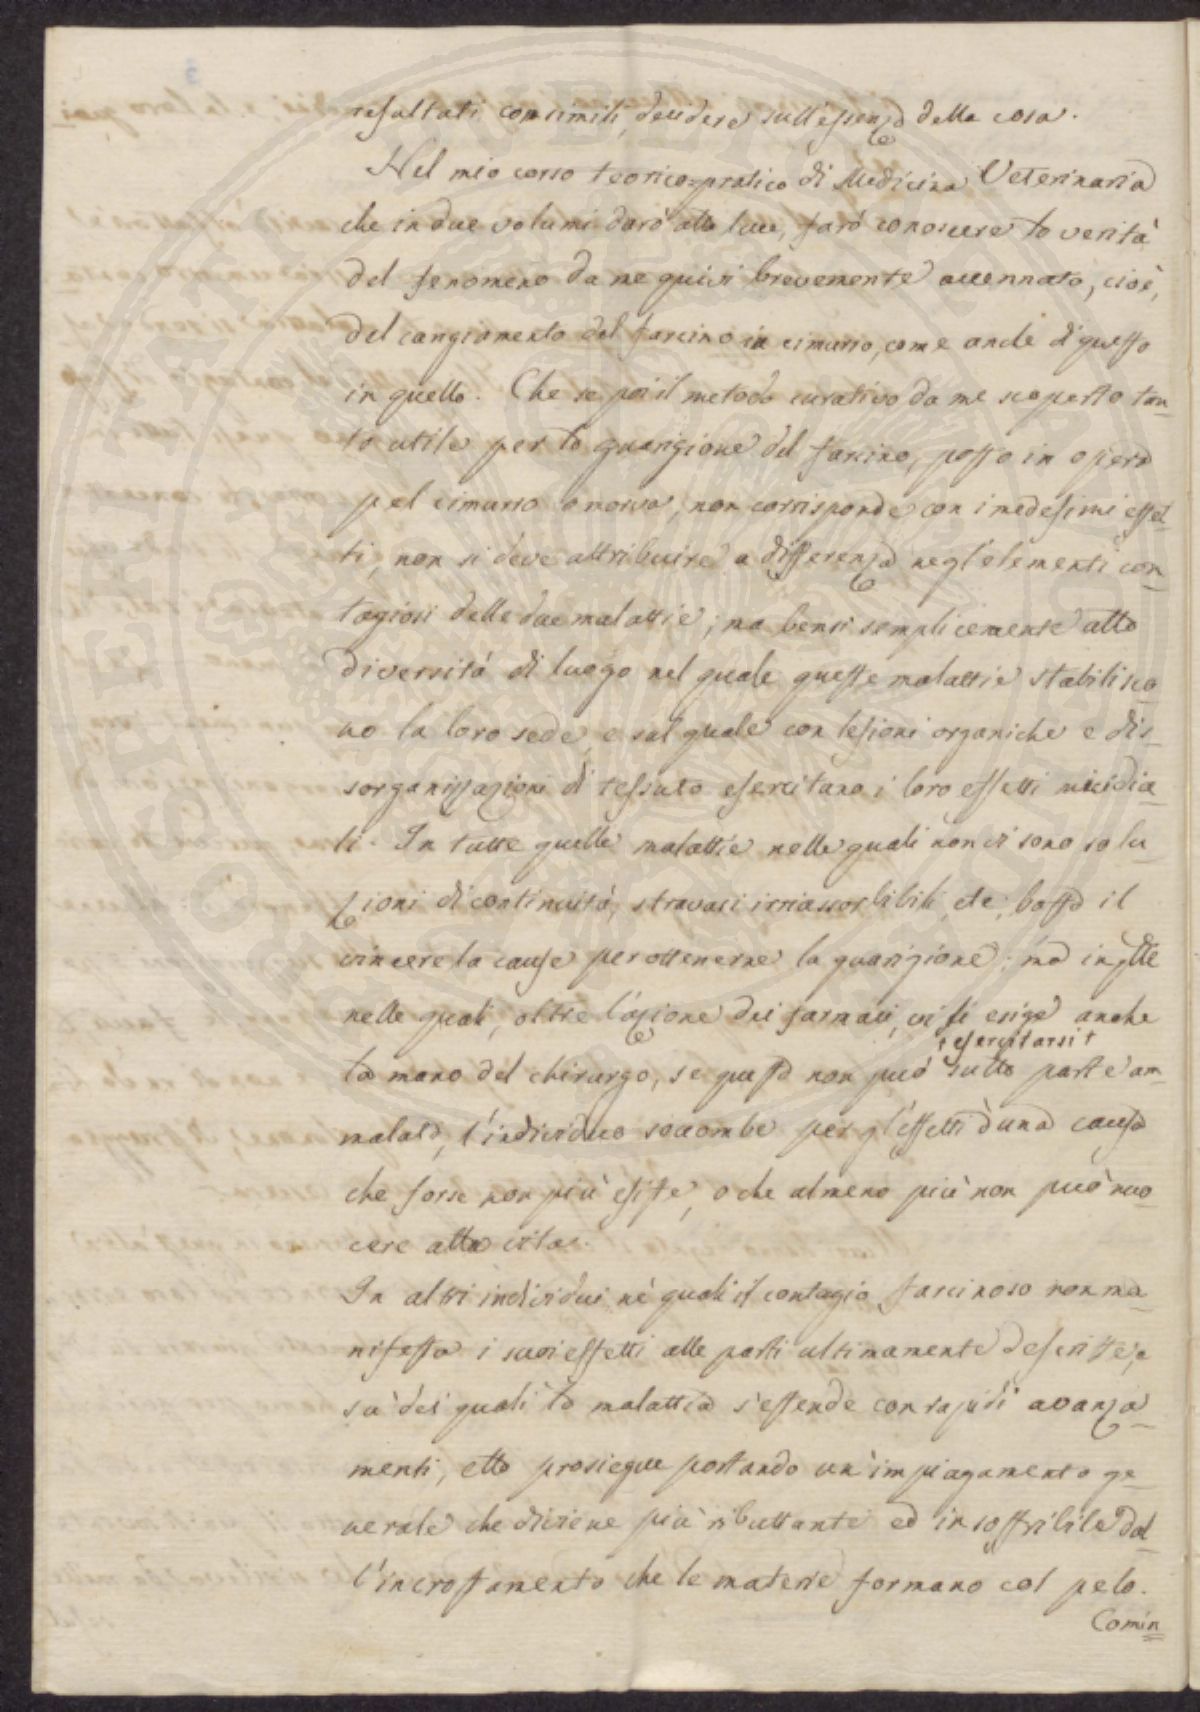 resultati consimili, decidere sull'essenza della cosa.
Nel mio corso teorico=pratico di Medicina Veterinaria
che in due volumi darò alla luce, farò conoscere la verità
del fenomeno da me quivi brevemente accennato, cioè,
del cangiamento del farcino in cimurro, come anche di questo
in quello. Che se poi il metodo curativo da me scoperto tan-
to utile per la guarigione del farcino, posto in opera
pel cimurro o morva, non corrisponde con i medesimi effet-
ti, non si deve attribuire a differenza negl'elementi con-
tagiosi delle due malattie; ma bensi semplicemente alla
diversità di luogo nel quale queste malattie stabilisco-
no la loro sede, e sul quale con lesioni organiche e dis-
sorganizzazioni di tessuto esercitano i loro effetti micidia-
li. In tutte quelle malattie nelle quali non vi sono solu-
zioni di continuità, stravasi irriassorbibili etc, basta il
vincere la cause per ottenerne la guarigione; ma in qlle
nelle quali, oltre l'azione dei farmaci, vi si esige anche
esercitarsi
la mano del chirurgo, se questa non può sulla parte am-
malata, l'individuo soccombe per gl'effetti d'una causa
che forse non più esiste, o che almeno più non può nuo-
cere alla vita.
In altri individui nè quali il contagio farcinoso non ma-
nifesta i suoi effetti alle parti ultimamente descritte, e
su dei quali la malattia s'estende con rapidi avanza-
menti, ella prosiegue portando un'impiagamento ge-
nerale che diviene più ributtante ed insoffribile dal-
l'incrostamento che le materie formano col pelo.
Comin